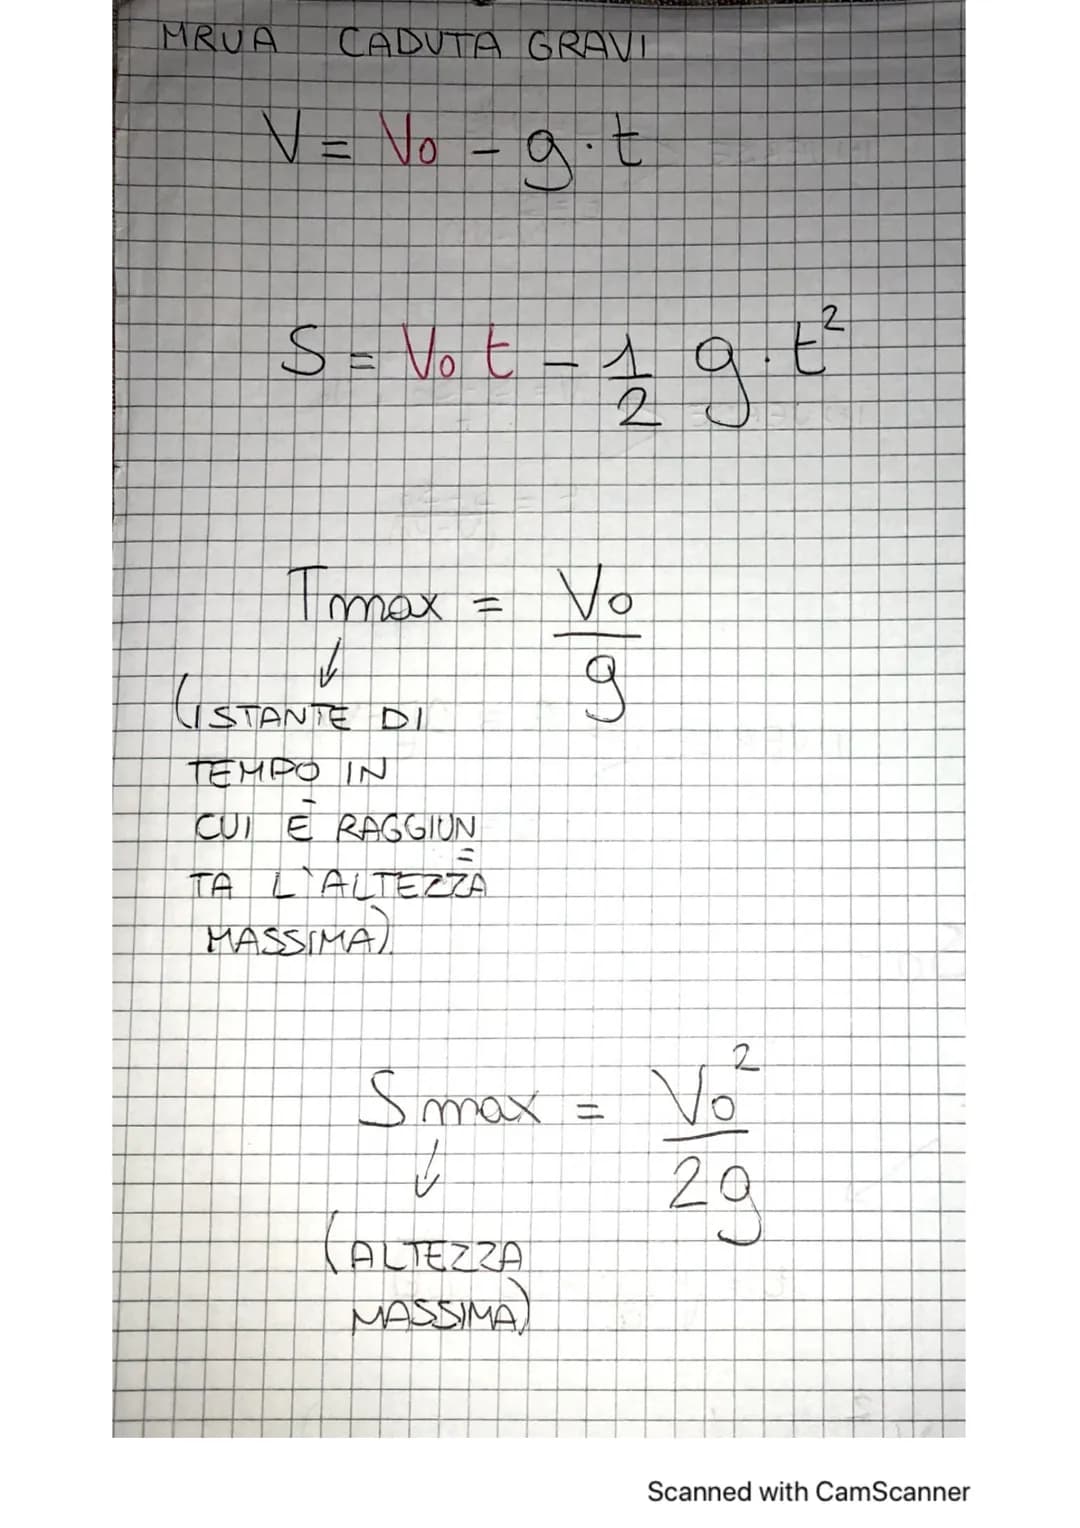 MRUA CADUTA GRAVI
V = Vo - g·t
S = Vo t - 1/2 g·t²
Tmax = Vo/g
↓
(ISTANTE DI
TEMPO IN
CUI È RAGGIUN
=
TA L'ALTEZZA
MASSIMA).
Smax = Vo²/2g
↓
(ALTEZZA
MASSIMA)
Scanned with CamScanner